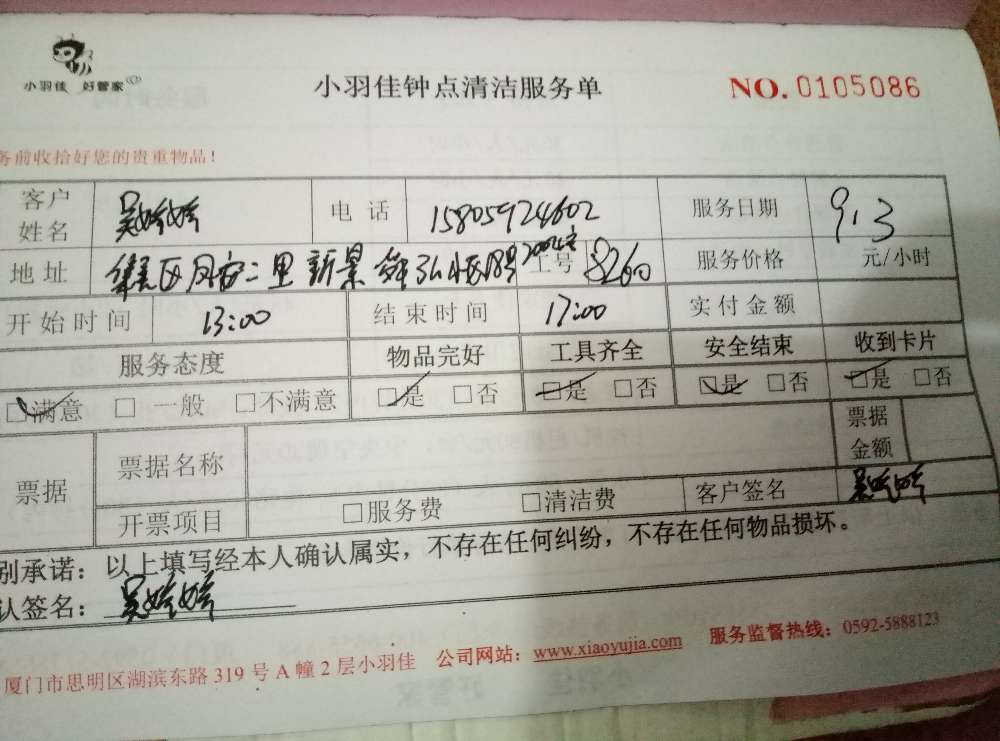 小羽佳 好管家
小羽佳钟点清洁服务单
NO. 0105086
务前收拾好您的贵重物品！
客户姓名 吴婷婷 电话 15805924602 服务日期 9.3
地址 二里新景 工号 8260 服务价格 元/小时
开始时间 13:00 结束时间 17:00 实付金额
服务态度 物品完好 工具齐全 安全结束 收到卡片
☑满意 □一般 □不满意 ☑是 □否 ☑是 □否 ☑是 □否 ☑是 □否
票据 票据名称 票据金额
开票项目 □服务费 □清洁费 客户签名 吴婷婷
别承诺：以上填写经本人确认属实，不存在任何纠纷，不存在任何物品损坏。
认签名：吴婷婷
厦门市思明区湖滨东路 319 号 A 幢 2 层小羽佳 公司网站：www.xiaoyujia.com 服务监督热线：0592-5888123